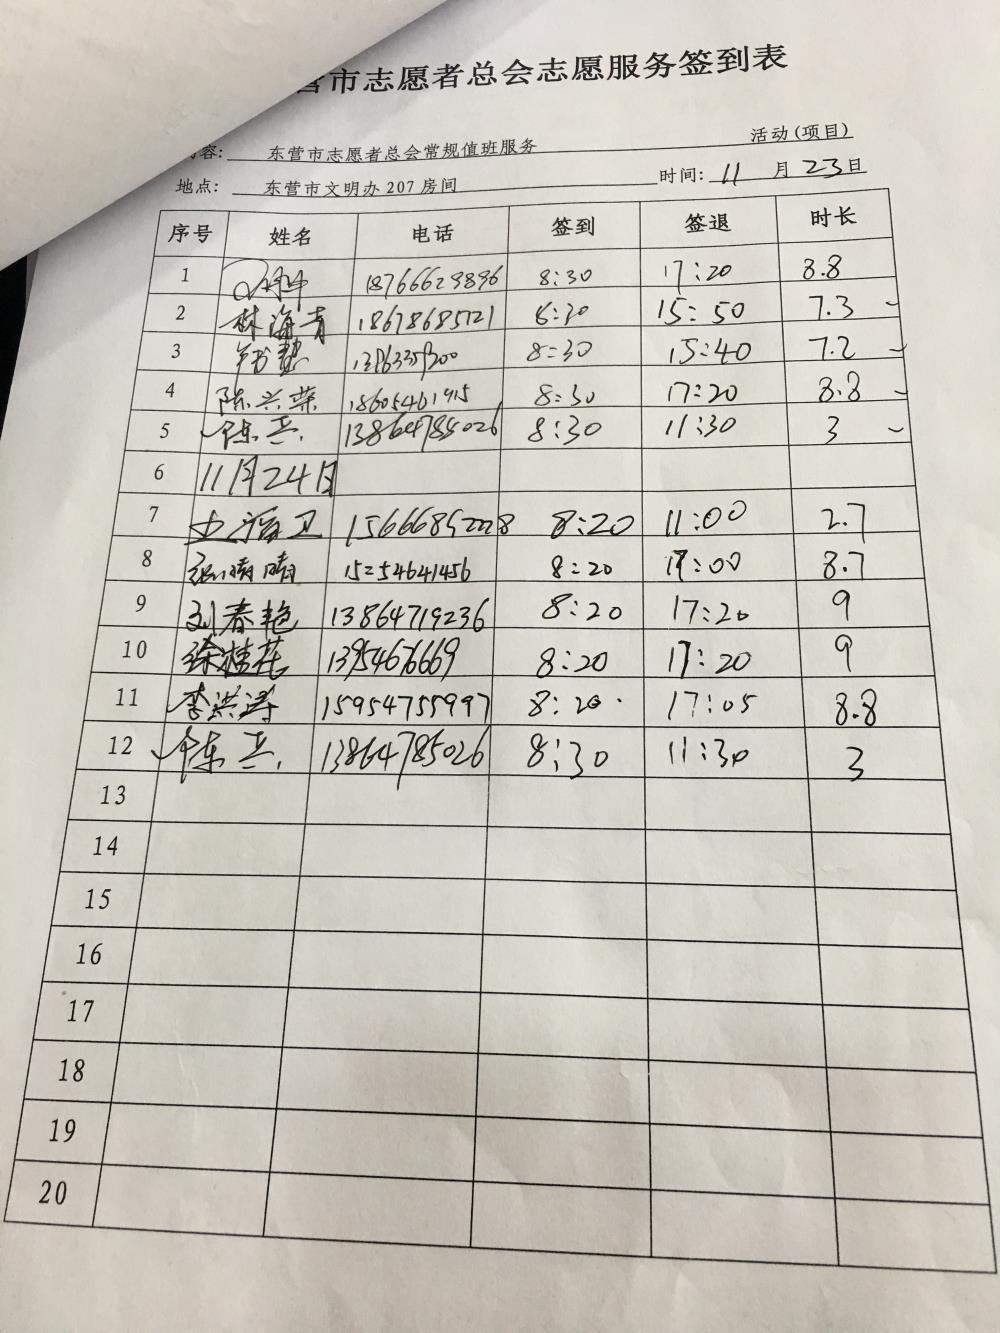 营市志愿者总会志愿服务签到表
容: 东营市志愿者总会常规值班服务 活动(项目)
地点: 东营市文明办207房间 时间: 11 月 23 日
序号 姓名 电话 签到 签退 时长
1 18766629896 8:30 17:20 8.8
2 林海青 18678685721 8:30 15:50 7.3
3 8:30 15:40 7.2
4 陈兴荣 18605461915 8:30 17:20 8.8
5 陈兵 13864785026 8:30 11:30 3
6 11月24日
7 15666852228 8:20 11:00 2.7
8 张晴晴 15254641456 8:20 17:00 8.7
9 刘春艳 13864719236 8:20 17:20 9
10 徐桂花 13954676669 8:20 17:20 9
11 李洪涛 15954755997 8:20 17:05 8.8
12 陈兵 13864785026 8:30 11:30 3
13
14
15
16
17
18
19
20